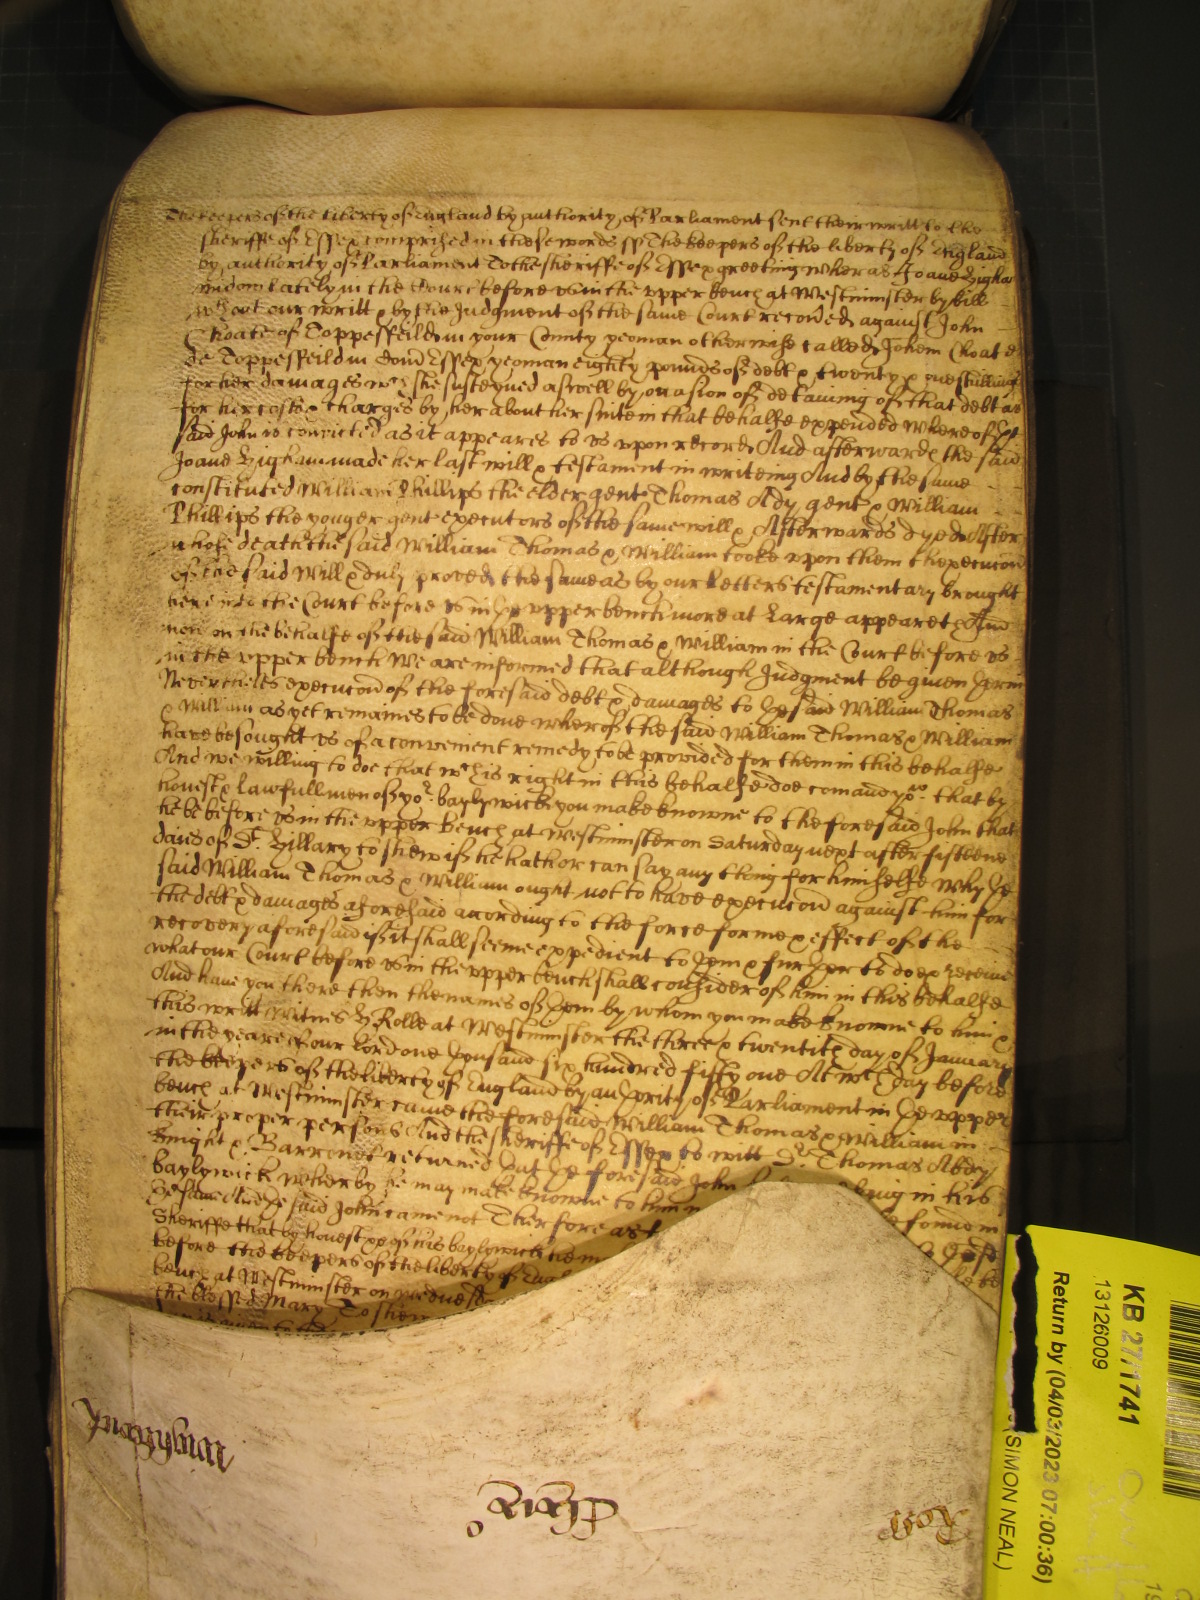 The keepers of the liberty of England by authority of Parliament sent their writt to the
sheriffe of Essex comprized in these words ss The keepers of the liberty of England
by authority of Parliament To the sheriffe of Essex greeting wheras Joane Bigham
widow lately in the Court before us in the upper bench at Westminster by bill
without our writt & by the Judgment of the same Court recovered against John
Choate of Toppesfeild in your County yeoman otherwise called Johem Choate
de Toppesfeild in Com Essex yeoman eighty pounds of debt & twenty & one shillings
for her damages wch she susteyned aswell by occasion of detaining of that debt as
for her costs & charges by her about her suite in that behalfe expended Whereof ye
said John is convicted as it appeares to us upon record And afterwards the said
Joane Bigham made her last will & testament in writeing And by the same
constituted William Phillips the elder gent Thomas Ady gent & William
Phillips the yonger gent executors of the same will & Afterwards dyed After
whose death the said William Thomas & William tooke upon them thexecucon
of the said Will & duly proved the same as by our Letters testamentary brought
here into the Court before us in ye upper bench more at Large appeareth And
now on the behalfe of the said William Thomas & William in the Court before us
in the upper bench We are informed that although Judgment be given yerin
Nevertheles execucon of the foresaid debt & damages to ye said William Thomas
& William as yet remaines to be done wherof the said William Thomas & William
have besought us of a convenient remedy to be provided for them in this behalfe
And we willing to doe that wch is right in this behalfe doe comaund you that by
honest & lawfull men of yor baylywick you make knowne to the foresaid John that
he be before us in the upper bench at Westminster on Saturday next after fifteene
daies of St Hillary to shew if he hath or can say any thing for himselfe why ye
said William Thomas & William ought not to have execucon against him for
the debt & damages aforesaid according to the force forme & effect of the
recovery aforesaid if it shall seeme expedient to yem & furyer to doe & receive
what our Court before us in the upper bench shall consider of him in this behalfe
And have you there then the names of yem by whom you make knowne to him &
this writt Witnes H Rolle at Westminster the three & twentith day of January
in the yeare of our Lord one yousand six hundred fifty one At wch day before
the keepers of the liberty of England by auyority of Parliament in ye upper
bench at Westminster came the foresaid William Thomas & William in
their proper persons And the sheriffe of Essex to witt Sr Thomas Abdy
Knight & Barronet returned yat ye foresaid John
baylywick wherby he may make knowne to him
ye same And ye said John came not Therfore as
Sheriffe that by honest &c of his baylywick he
before the keepers of the liberty of
bench at Westminster on wednesday
the blessed Mary To shew
KB 27/1741
13126009
Return by (04/03/2023 07:00:36)
(SIMON NEAL)